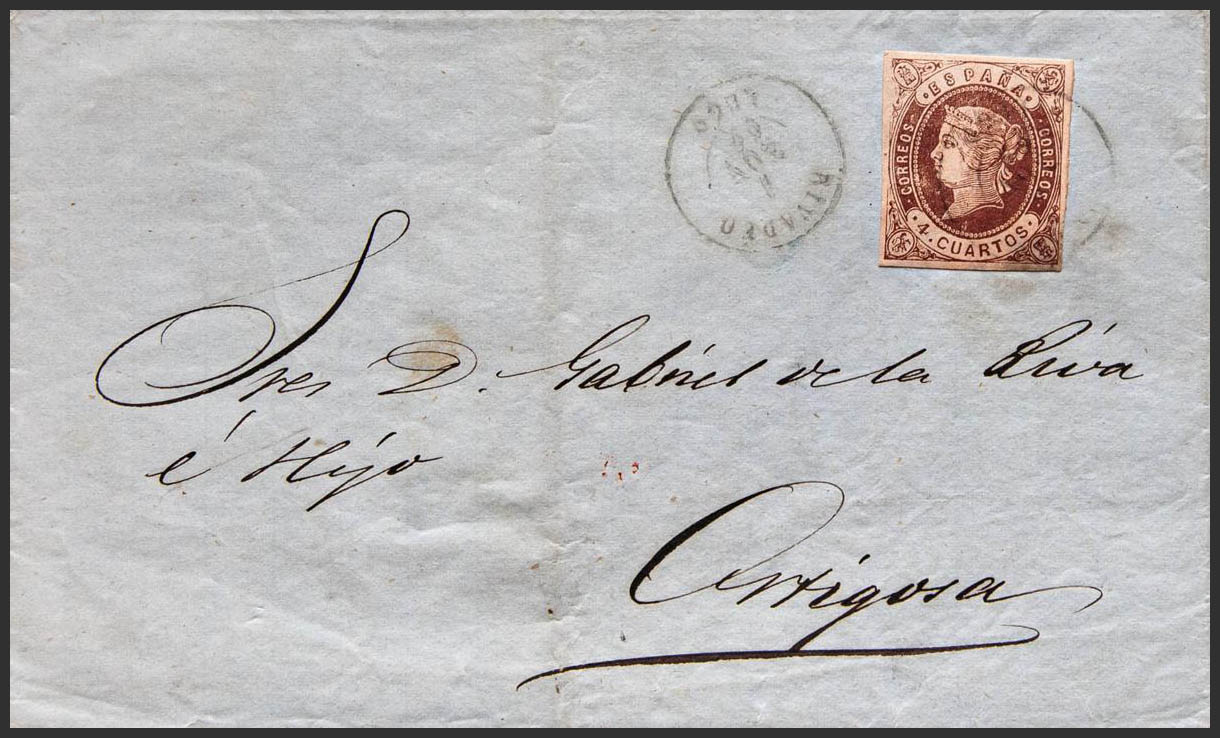 ESPAÑA
CORREOS
CORREOS
4. CUARTOS.
RIVADEO
LUGO
Sres D. Gabriel de la Riva
é Hijo
Ortigosa